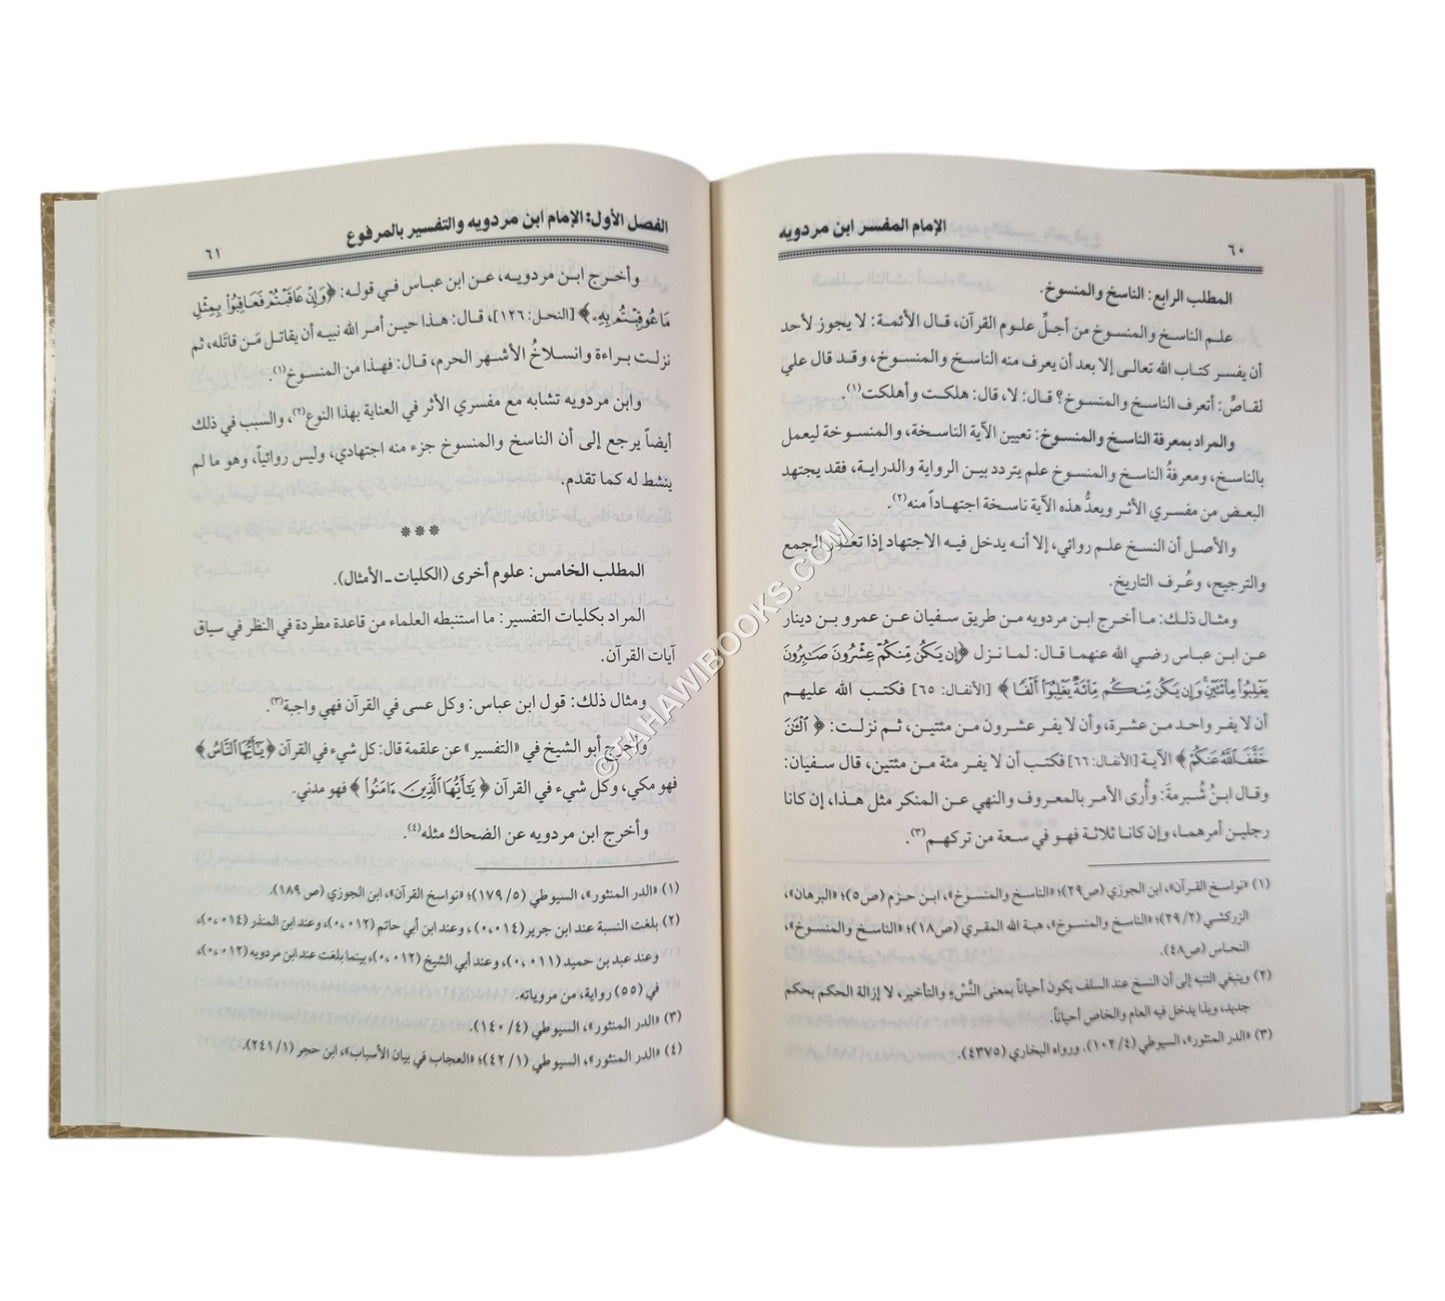 ٦٠ الإمام المفسر ابن مردويه
المطلب الرابع: الناسخ والمنسوخ.
علم الناسخ والمنسوخ من أجلِّ علوم القرآن، قال الأئمة: لا يجوز لأحد
أن يفسر كتاب الله تعالى إلا بعد أن يعرف منه الناسخ والمنسوخ، وقد قال علي
لقاصٍّ: أتعرف الناسخ والمنسوخ؟ قال: لا، قال: هلكت وأهلكت(١).
والمراد بمعرفة الناسخ والمنسوخ: تعيين الآية الناسخة، والمنسوخة ليعمل
بالناسخ، ومعرفةُ الناسخ والمنسوخ علم يتردد بين الرواية والدراية، فقد يجتهد
البعض من مفسري الأثر ويعدُّ هذه الآية ناسخة اجتهاداً منه(٢).
والأصل أن النسخ علم روائي، إلا أنه يدخل فيه الاجتهاد إذا تعذر الجمع
والترجيح، وعُرف التاريخ.
ومثال ذلك: ما أخرج ابن مردويه من طريق سفيان عن عمرو بن دينار
عن ابن عباس رضي الله عنهما قال: لما نزل ﴿إِن يَكُن مِّنكُمْ عِشْرُونَ صَـٰبِرُونَ
يَغْلِبُوا۟ مِا۟ئَتَيْنِ وَإِن يَكُن مِّنكُم مِّا۟ئَةٌ يَغْلِبُوٓا۟ أَلْفًا﴾ [الأنفال: ٦٥] فكتب الله عليهم
أن لا يفر واحد من عشرة، وأن لا يفر عشرون من مئتين، ثم نزلت: ﴿ٱلْـَٔـٰنَ
خَفَّفَ ٱللَّهُ عَنكُمْ﴾ الآية [الأنفال: ٦٦] فكتب أن لا يفر مئة من مئتين، قال سفيان:
وقال ابنُ شُبرمةَ: وأُرى الأمر بالمعروف والنهي عن المنكر مثل هذا، إن كانا
رجلين أمرهما، وإن كانا ثلاثة فهو في سعة من تركهم(٣).
(١) «نواسخ القرآن»، ابن الجوزي (ص٢٩)؛ «الناسخ والمنسوخ»، ابن حزم (ص٥)؛ «البرهان»،
الزركشي (٢/ ٢٩)؛ «الناسخ والمنسوخ»، هبة الله المقري (ص١٨)؛ «الناسخ والمنسوخ»،
النحاس (ص٤٨).
(٢) وينبغي التنبه إلى أن النسخ عند السلف يكون أحياناً بمعنى النَّسْءِ والتأخير، لا إزالة الحكم بحكم
جديد، وبذا يدخل فيه العام والخاص أحياناً.
(٣) «الدر المنثور»، السيوطي (٤/ ١٠٢). ورواه البخاري (٤٣٧٥).
الفصل الأول: الإمام ابن مردويه والتفسير بالمرفوع ٦١
وأخرج ابن مردويه، عن ابن عباس في قوله: ﴿وَإِنْ عَاقَبْتُمْ فَعَاقِبُوا۟ بِمِثْلِ
مَا عُوقِبْتُم بِهِۦ﴾ [النحل: ١٢٦]، قال: هذا حين أمر الله نبيه أن يقاتل مَن قاتَله، ثم
نزلت براءة وانسلاخُ الأشهر الحرم، قال: فهذا من المنسوخ(١).
وابن مردويه تشابه مع مفسري الأثر في العناية بهذا النوع(٢)، والسبب في ذلك
أيضاً يرجع إلى أن الناسخ والمنسوخ جزء منه اجتهادي، وليس روائياً، وهو ما لم
ينشط له كما تقدم.
***
المطلب الخامس: علوم أخرى (الكليات ـ الأمثال).
المراد بكليات التفسير: ما استنبطه العلماء من قاعدة مطردة في النظر في سياق
آيات القرآن.
ومثال ذلك: قول ابن عباس: وكل عسى في القرآن فهي واجبة(٣).
وأخرج أبو الشيخ في «التفسير» عن علقمة قال: كل شيء في القرآن ﴿يَـٰٓأَيُّهَا ٱلنَّاسُ﴾
فهو مكي، وكل شيء في القرآن ﴿يَـٰٓأَيُّهَا ٱلَّذِينَ ءَامَنُوا۟﴾ فهو مدني.
وأخرج ابن مردويه عن الضحاك مثله(٤).
(١) «الدر المنثور»، السيوطي (٥/ ١٧٩)؛ «نواسخ القرآن»، ابن الجوزي (ص ١٨٩).
(٢) بلغت النسبة عند ابن جرير (٠،٠١٤)، وعند ابن أبي حاتم (٠،٠١٢)، وعند ابن المنذر (٠،٠١٤)،
وعند عبد بن حميد (٠،٠١١)، وعند أبي الشيخ (٠،٠١٢)، بينما بلغت عند ابن مردويه (٠،٠١٢)
في (٥٥) رواية، من مروياته.
(٣) «الدر المنثور»، السيوطي (٤/ ١٤٠).
(٤) «الدر المنثور»، السيوطي (١/ ٤٢)؛ «العجاب في بيان الأسباب»، ابن حجر (١/ ٢٤١).
© TAHAWIBOOKS.COM